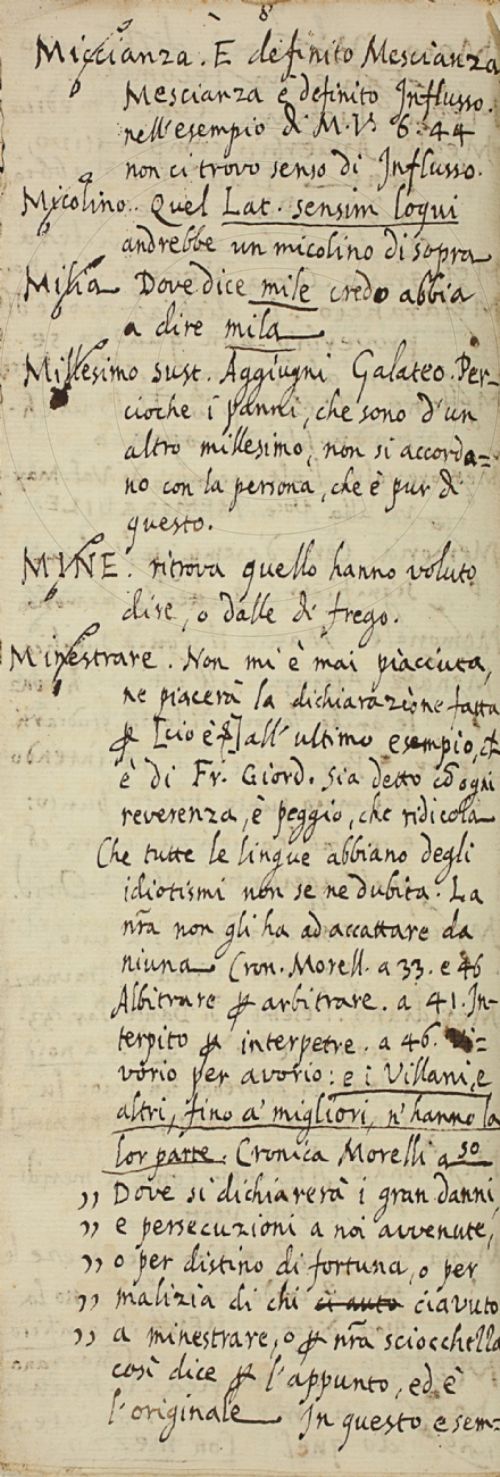 8
Miccianza. E definito Mescianza
Mescianza è definito Influsso.
nell'esempio di M.V. 6. 44
non ci trovo senso di Influsso.
Micolino. Quel Lat. sensim loqui
andrebbe un micolino di sopra
Milia Dove dice mile credo abbia
a dire mila
Millesimo sust. Aggiugni Galateo. Per-
cioche i panni, che sono d'un
altro millesimo, non si accorda=
no con la persona, che è pur di
questo.
MINE. ritrova quello hanno voluto
dire, o dalle di frego.
Minestrare. Non mi è mai piàcciuta,
ne piacerà la dichiarazione fatta
ꝑ [cio è ꝑ] all'ultimo esempio, ch
è di Fr. Giord. Sia detto cō ogni
reverenza, è peggio, che ridicola
Che tutte le lingue abbiano degli
idiotismi non se ne dubita. La
nr̃a non gli ha ad accattare da
niuna Cron. Morell. a 33. e 46
Albitrare ꝑ arbitrare. a 41. In-
terpito ꝑ interpetre. a 46. Vi-
vorio per avorio: e i Villani, e
altri, fino a' migliori, n'hanno la
lor parte. Cronica Morelli a 50
,, Dove si dichiarerà i gran danni,
,, e persecuzioni a noi avvenute,
,, o per distino di fortuna, o per
,, malizia di chi ci auto ciavuto
,, a minestrare, o ꝑ nr̃a sciocchella
così dice ꝑ l'appunto, ed è
l'originale In questo esem=